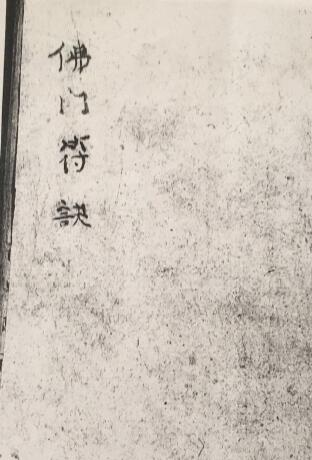 佛门符訣